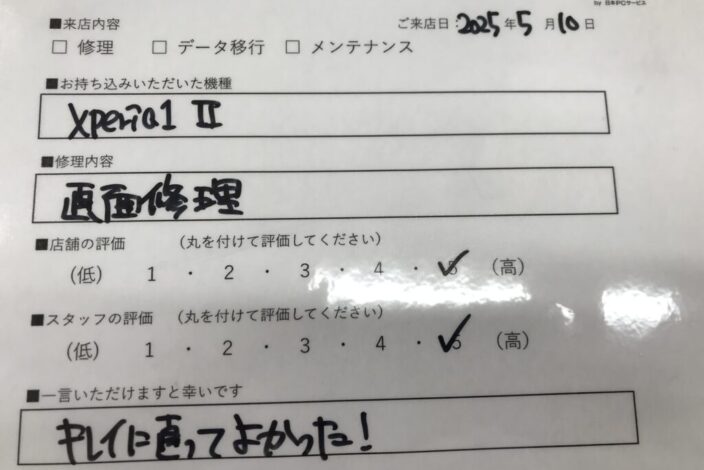 by 日本PCサービス
■来店内容 ご来店日:2025年5月10日
□ 修理 □ データ移行 □ メンテナンス
■お持ち込みいただいた機種
Xperia1 II
■修理内容
画面修理
■店舗の評価 (丸を付けて評価してください)
(低) 1 ・ 2 ・ 3 ・ 4 ・ 5 (高)
■スタッフの評価 (丸を付けて評価してください)
(低) 1 ・ 2 ・ 3 ・ 4 ・ 5 (高)
■一言いただけますと幸いです
キレイに直ってよかった!